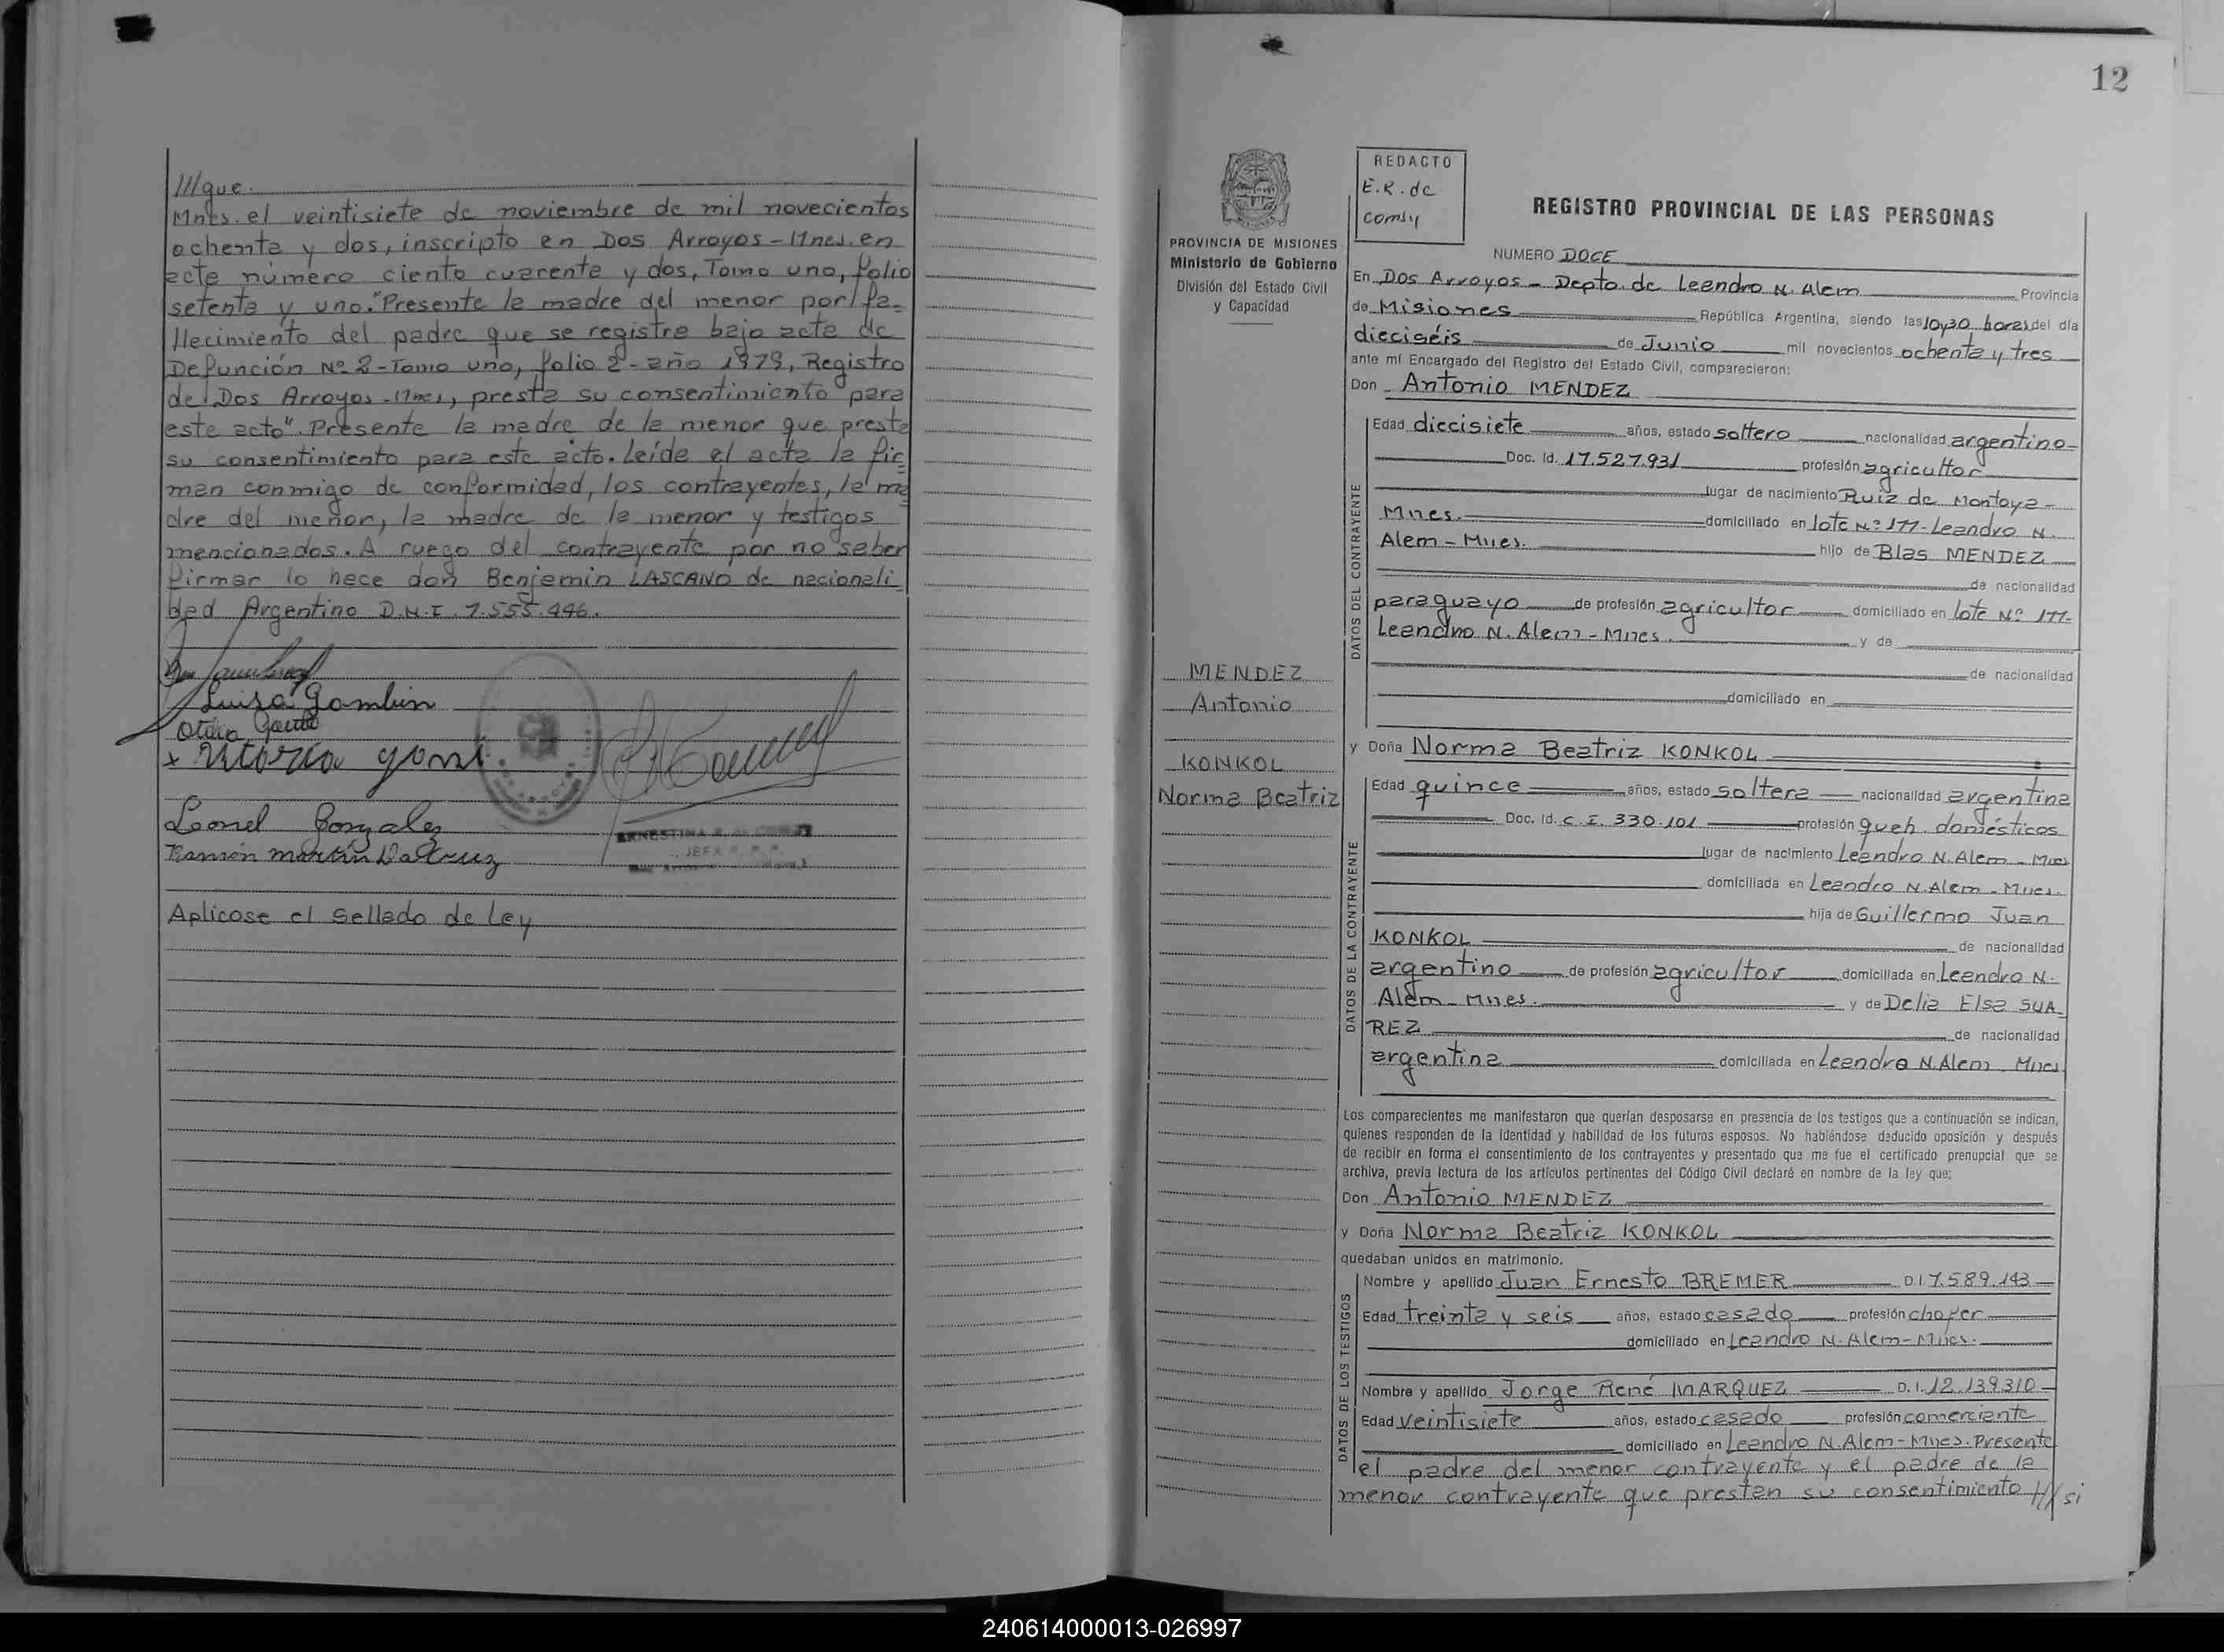 ///que.
Mnes. el veintisiete de noviembre de mil novecientos
ochenta y dos, inscripto en Dos Arroyos - Mnes. en
acta número ciento cuarenta y dos, Tomo uno, folio
setenta y uno. "Presente la madre del menor por fa-
llecimiento del padre que se registra bajo acta de
Defunción Nº 2 - Tomo uno, folio 2 - año 1979, Registro
de Dos Arroyos - Mnes, presta su consentimiento para
este acto". Presente la madre de la menor que presta
su consentimiento para este acto. Leída el acta la fir
man conmigo de conformidad, los contrayentes, la ma
dre del menor, la madre de la menor y testigos
mencionados. A ruego del contrayente por no saber
firmar lo hace don Benjamin LASCANO de nacionali
dad Argentino D.N.I. 7.555.446.
Luisa Gambin
Leonel Gonzalez
Ramón Martín
ERNESTINA R. de
JEFA R. P. P.
Aplicose el sellado de Ley
12
PROVINCIA DE MISIONES
Ministerio de Gobierno
División del Estado Civil
y Capacidad
REDACTO
E.R. de
REGISTRO PROVINCIAL DE LAS PERSONAS
NUMERO DOCE
En Dos Arroyos - Depto. de Leandro N. Alem Provincia
de Misiones República Argentina, siendo las 10y30 horas del día
dieciséis de Junio mil novecientos ochenta y tres
ante mí Encargado del Registro del Estado Civil, comparecieron:
Don Antonio MENDEZ
DATOS DEL CONTRAYENTE
Edad diecisiete años, estado soltero nacionalidad argentino
Doc. Id. 17.527.931 profesión agricultor
lugar de nacimiento Ruiz de Montoya -
Mnes. domiciliado en lote Nº 177 - Leandro N.
Alem - Mnes. hijo de Blas MENDEZ
de nacionalidad
paraguayo de profesión agricultor domiciliado en lote Nº 177-
Leandro N. Alem - Mnes. y de
de nacionalidad
domiciliado en
MENDEZ
Antonio
KONKOL
Norma Beatriz
y Doña Norma Beatriz KONKOL
DATOS DE LA CONTRAYENTE
Edad quince años, estado soltera nacionalidad argentina
Doc. Id. C.I. 330.101 profesión queh. domésticos
lugar de nacimiento Leandro N. Alem - Mnes
domiciliada en Leandro N. Alem - Mnes.
hija de Guillermo Juan
KONKOL de nacionalidad
argentino de profesión agricultor domiciliada en Leandro N.
Alem - Mnes. y de Delia Elsa SUA
REZ de nacionalidad
argentina domiciliada en Leandro N. Alem - Mnes
Los comparecientes me manifestaron que querían desposarse en presencia de los testigos que a continuación se indican,
quienes responden de la identidad y habilidad de los futuros esposos. No habiéndose deducido oposición y después
de recibir en forma el consentimiento de los contrayentes y presentado que me fue el certificado prenupcial que se
archiva, previa lectura de los artículos pertinentes del Código Civil declaré en nombre de la ley que:
Don Antonio MENDEZ
y Doña Norma Beatriz KONKOL
quedaban unidos en matrimonio.
DATOS DE LOS TESTIGOS
Nombre y apellido Juan Ernesto BREMER D.I. 7.589.143
Edad treinta y seis años, estado casado profesión chofer
domiciliado en Leandro N. Alem - Mnes.
Nombre y apellido Jorge René MARQUEZ D.I. 12.139.310
Edad veintisiete años, estado casado profesión comerciante
domiciliado en Leandro N. Alem - Mnes. Presente
el padre del menor contrayente y el padre de la
menor contrayente que prestan su consentimiento ///si
240614000013-026997